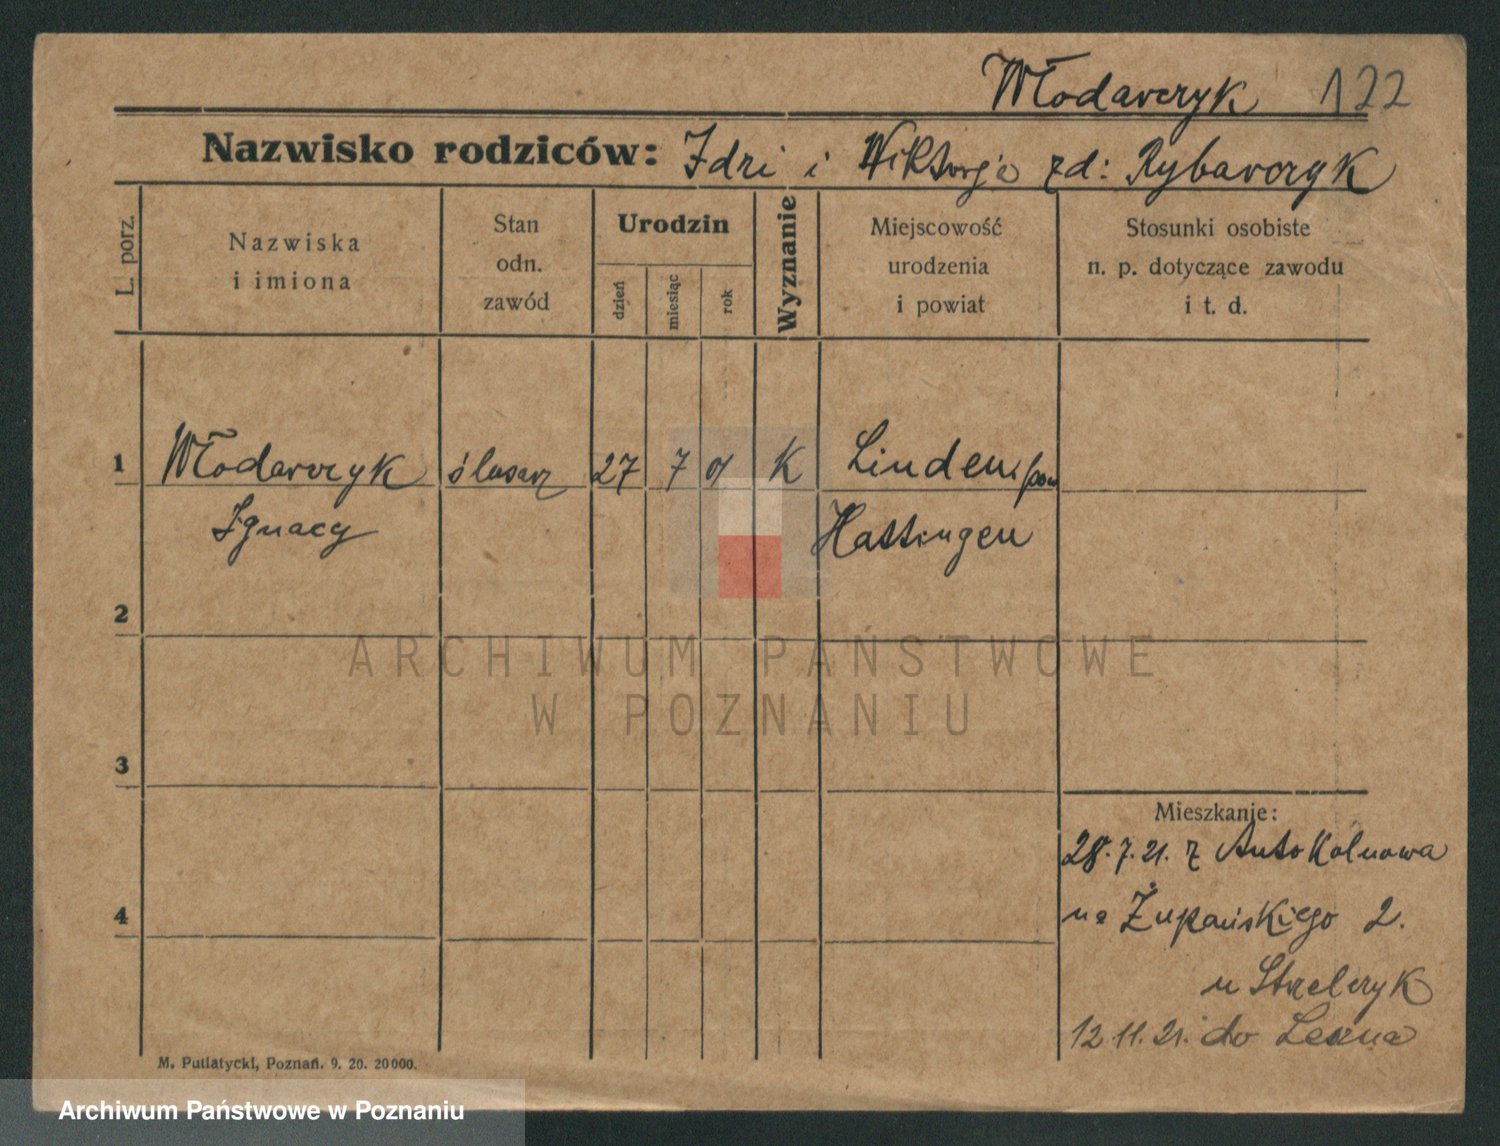 Włodarczyk 122
Nazwisko rodziców: Idzi i Wiktorja zd: Rybarczyk
L. porz.
Nazwiska
i imiona
Stan
odn.
zawód
Urodzin
dzień
miesiąc
rok
Wyznanie
Miejscowość
urodzenia
i powiat
Stosunki osobiste
n. p. dotyczące zawodu
i t. d.
1 Włodarczyk ślusarz 27 7 01 K Linden pow
Ignacy Hattingen
2
ARCHIWUM PAŃSTWOWE
W POZNANIU
3
Mieszkanie:
28.7.21. z
4
na Żupańskiego 2.
u Strelczyk
12.11.21. do Leszna
M. Putiatycki, Poznań. 9. 20. 20000.
Archiwum Państwowe w Poznaniu